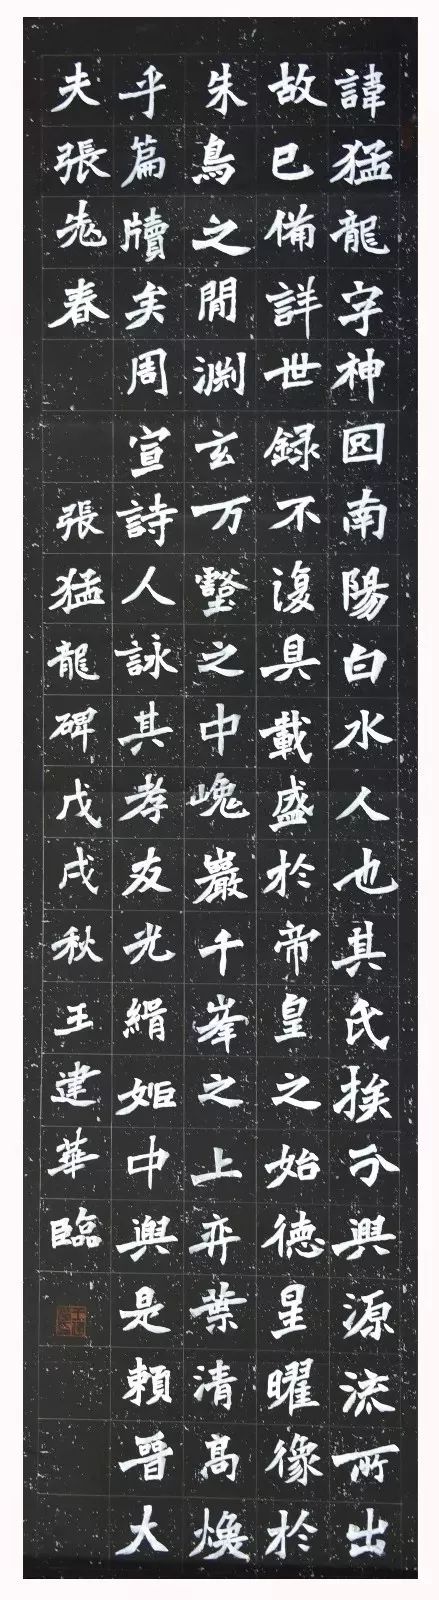 諱猛龍字神囧南陽白水人也其氏挨分興源流所出
故已備詳世録不復具載盛於帝皇之始德星曜像於
朱鳥之間淵玄万壑之中巍巖千峯之上弈葉清高煥
乎篇牘矣周宣詩人詠其孝友光緝姬中興是賴晉大
夫張老春 張猛龍碑戊戌秋王建華臨